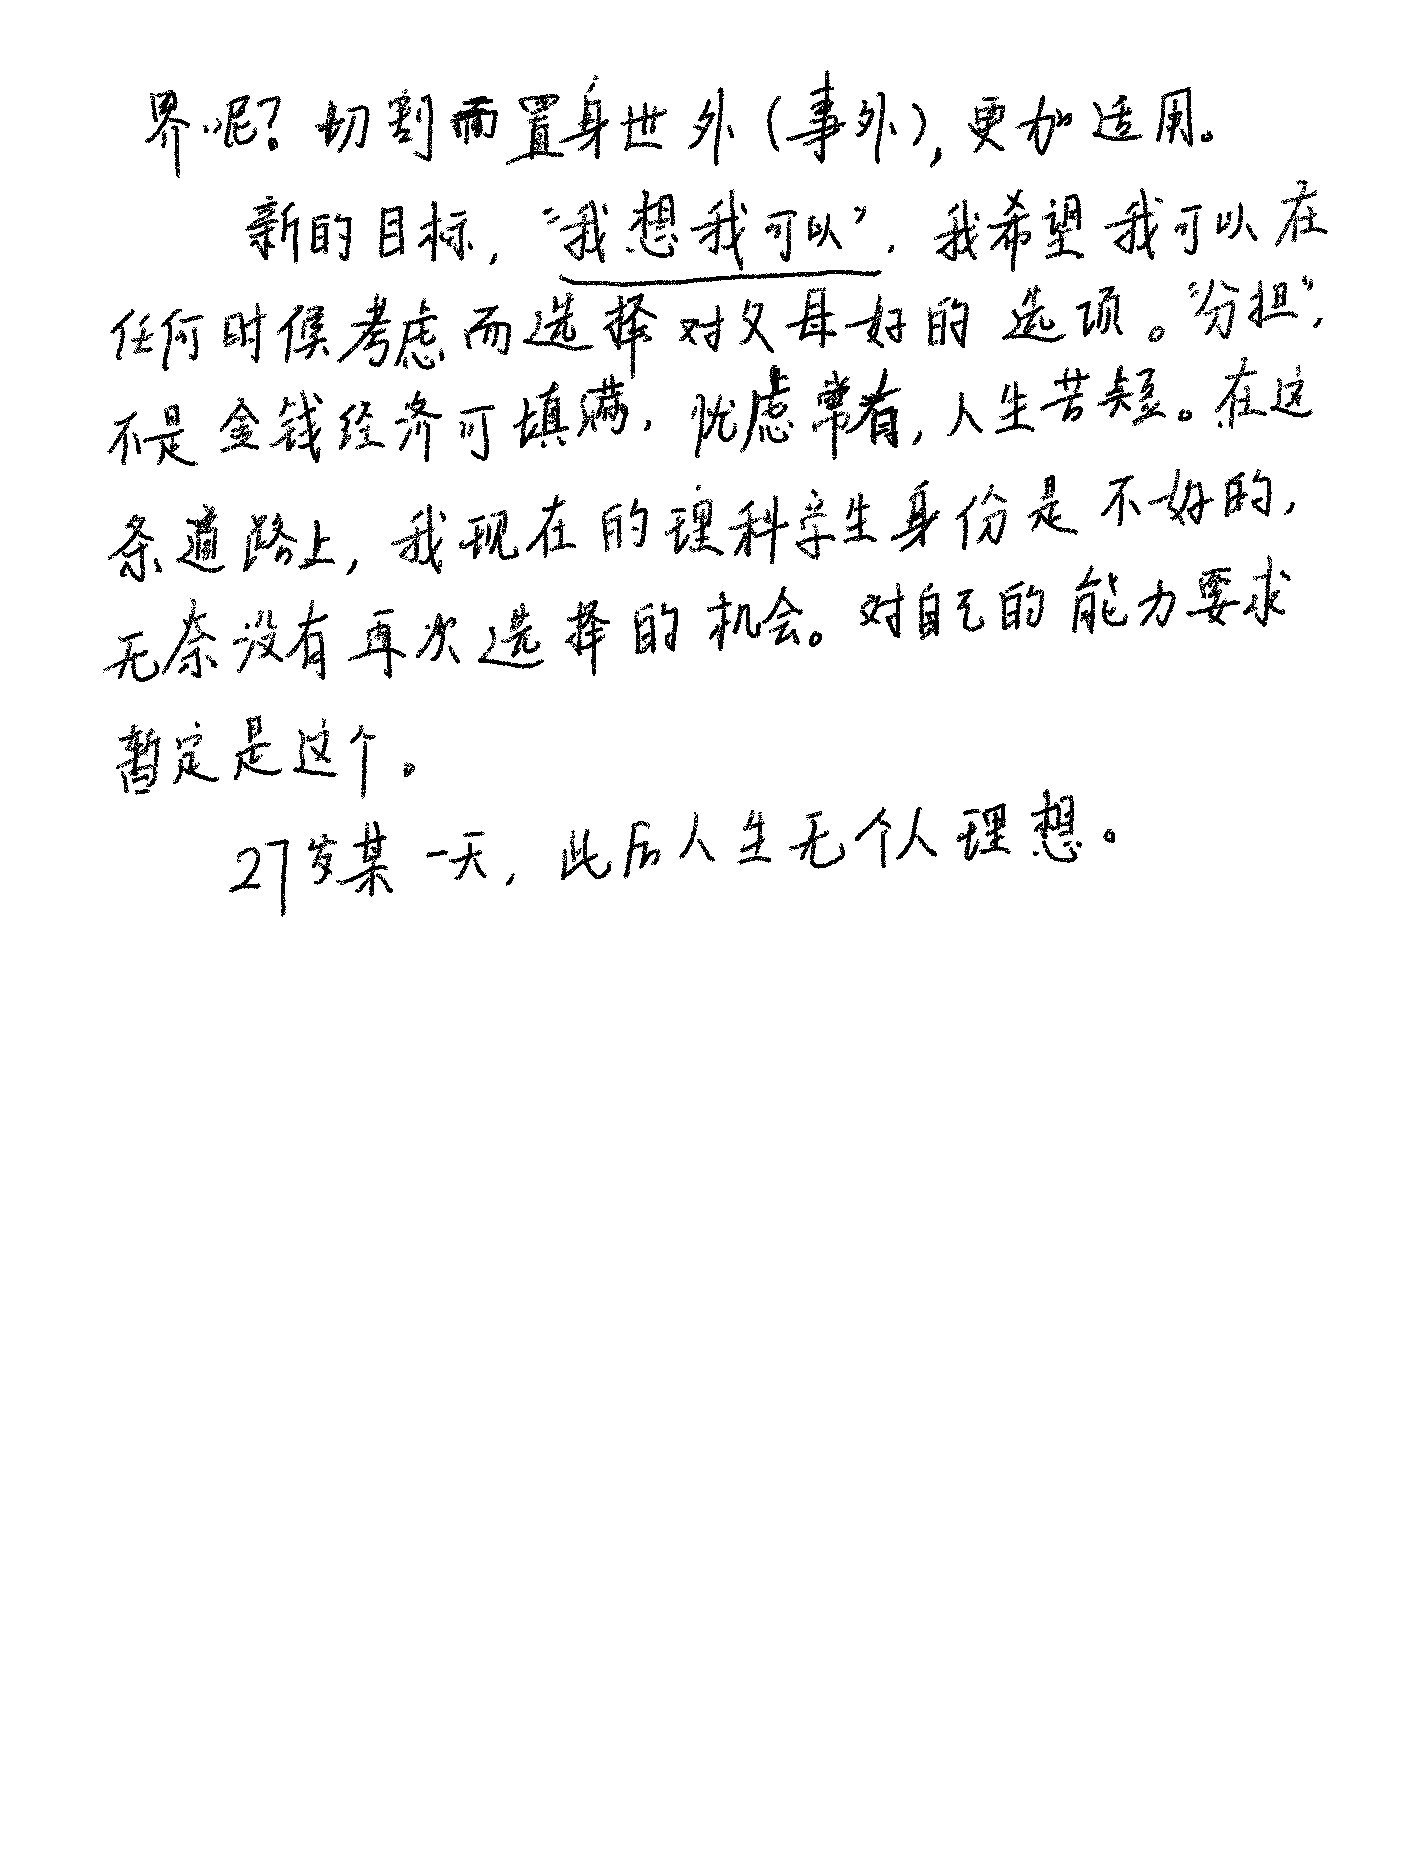 界呢？切割而置身世外（事外），更加适用。
新的目标，“我想我可以”．我希望我可以在
任何时候考虑而选择对父母好的选项。“分担”，
不是金钱经济可填满，忧虑常有，人生苦短。在这
条道路上，我现在的理科学生身份是不好的，
无奈没有再次选择的机会。对自己的能力要求
暂定是这个。
27岁某一天，此后人生无个人理想。